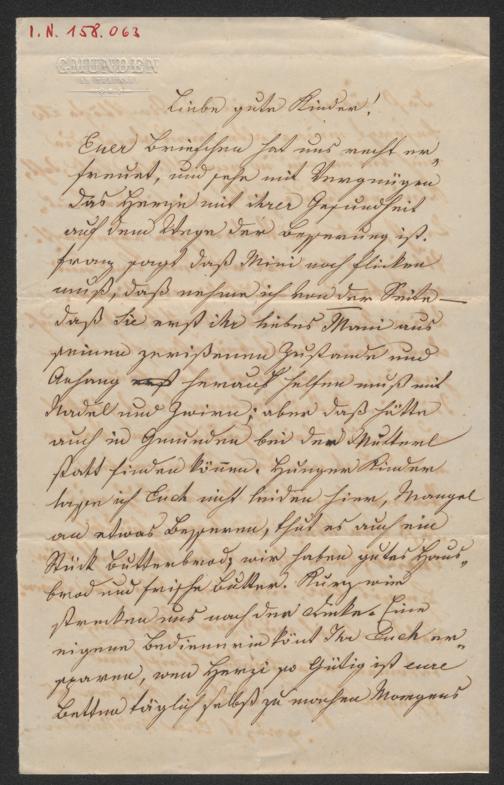 I. N. 158.063
GMUNDEN
Liebe gute Kinder!
Euer Briefchen hat uns recht er-
freuet, und sehe mit Vergnügen
das Herzi mit ihrer Gesundheit
auf dem Wege der Besserung ist.
Franz sagt daß Mini noch flicken
muß, daß nehme ich von der Seite—
daß Sie erst ihr liebes Mani aus
seinem zerrißenen Zustande und
Anhang heraus helfen muß mit
Nadel und Zwirn; aber daß hätte
auch in Gmunden bei der Mutterl
statt finden können. Hunger Kinder
lasse ich Euch nicht leiden hier, Mangel
an etwas Besseren, thut es auch ein
Stück Butterbrod, wir haben gutes Haus-
brod und frische Butter. Kurz wir
strecken uns nach der Decke. Eine
eigene Bedienerin könt Ihr Euch er-
sparen, wen Herzi so Gütig ist eure
Betten täglich selbst zu machen Morgens